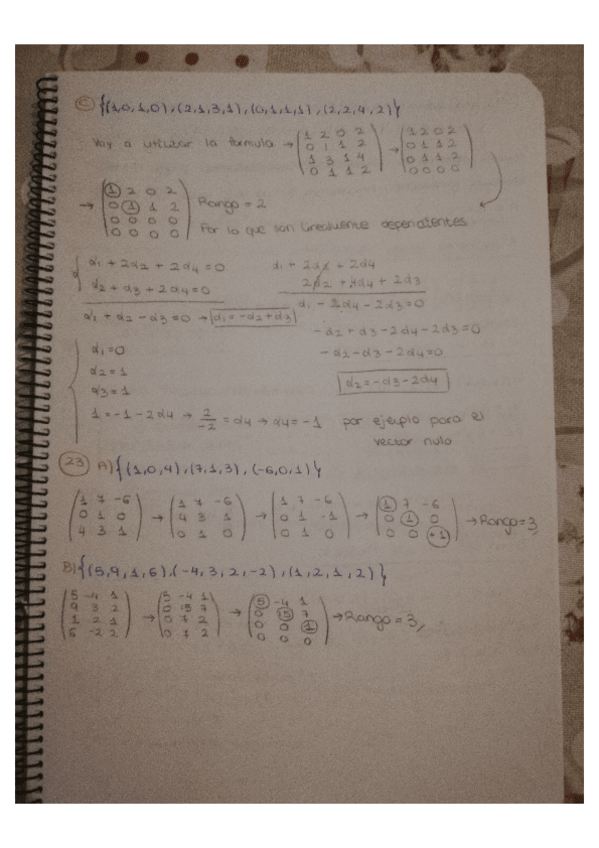 C) {(1,0,1,0),(2,1,3,1),(0,1,1,1),(2,2,4,2)}
Voy a utilizar la formula → (1 2 0 2 / 0 1 1 2 / 1 3 1 4 / 0 1 1 2) → (1 2 0 2 / 0 1 1 2 / 0 1 1 2 / 0 0 0 0)
→ (1 2 0 2 / 0 1 1 2 / 0 0 0 0 / 0 0 0 0) Rango = 2
Por lo que son linealmente dependientes
α1 + 2α2 + 2α4 = 0
α2 + α3 + 2α4 = 0
α1 + α2 - α3 = 0 → α1 = -α2 + α3
α1 + 2α2 + 2α4
2α2 + 4α4 + 2α3
α1 - 2α4 - 2α3 = 0
-α2 + α3 - 2α4 - 2α3 = 0
-α2 - α3 - 2α4 = 0
α2 = -α3 - 2α4
α1 = 0
α2 = 1
α3 = 1
1 = -1 - 2α4 → 2/-2 = α4 → α4 = -1 por ejemplo para el
vector nulo
23 A) {(1,0,4),(7,1,3),(-6,0,1)}
(1 7 -6 / 0 1 0 / 4 3 1) → (1 7 -6 / 4 3 1 / 0 1 0) → (1 7 -6 / 0 1 -1 / 0 1 0) → (1 7 -6 / 0 1 0 / 0 0 -1) → Rango = 3
B) {(5,9,1,6),(-4,3,2,-2),(1,2,1,2)}
(5 -4 1 / 9 3 2 / 1 2 1 / 6 -2 2) → (5 -4 1 / 0 15 7 / 0 7 2 / 0 7 2) → (5 -4 1 / 0 15 7 / 0 0 1 / 0 0 0) → Rango = 3